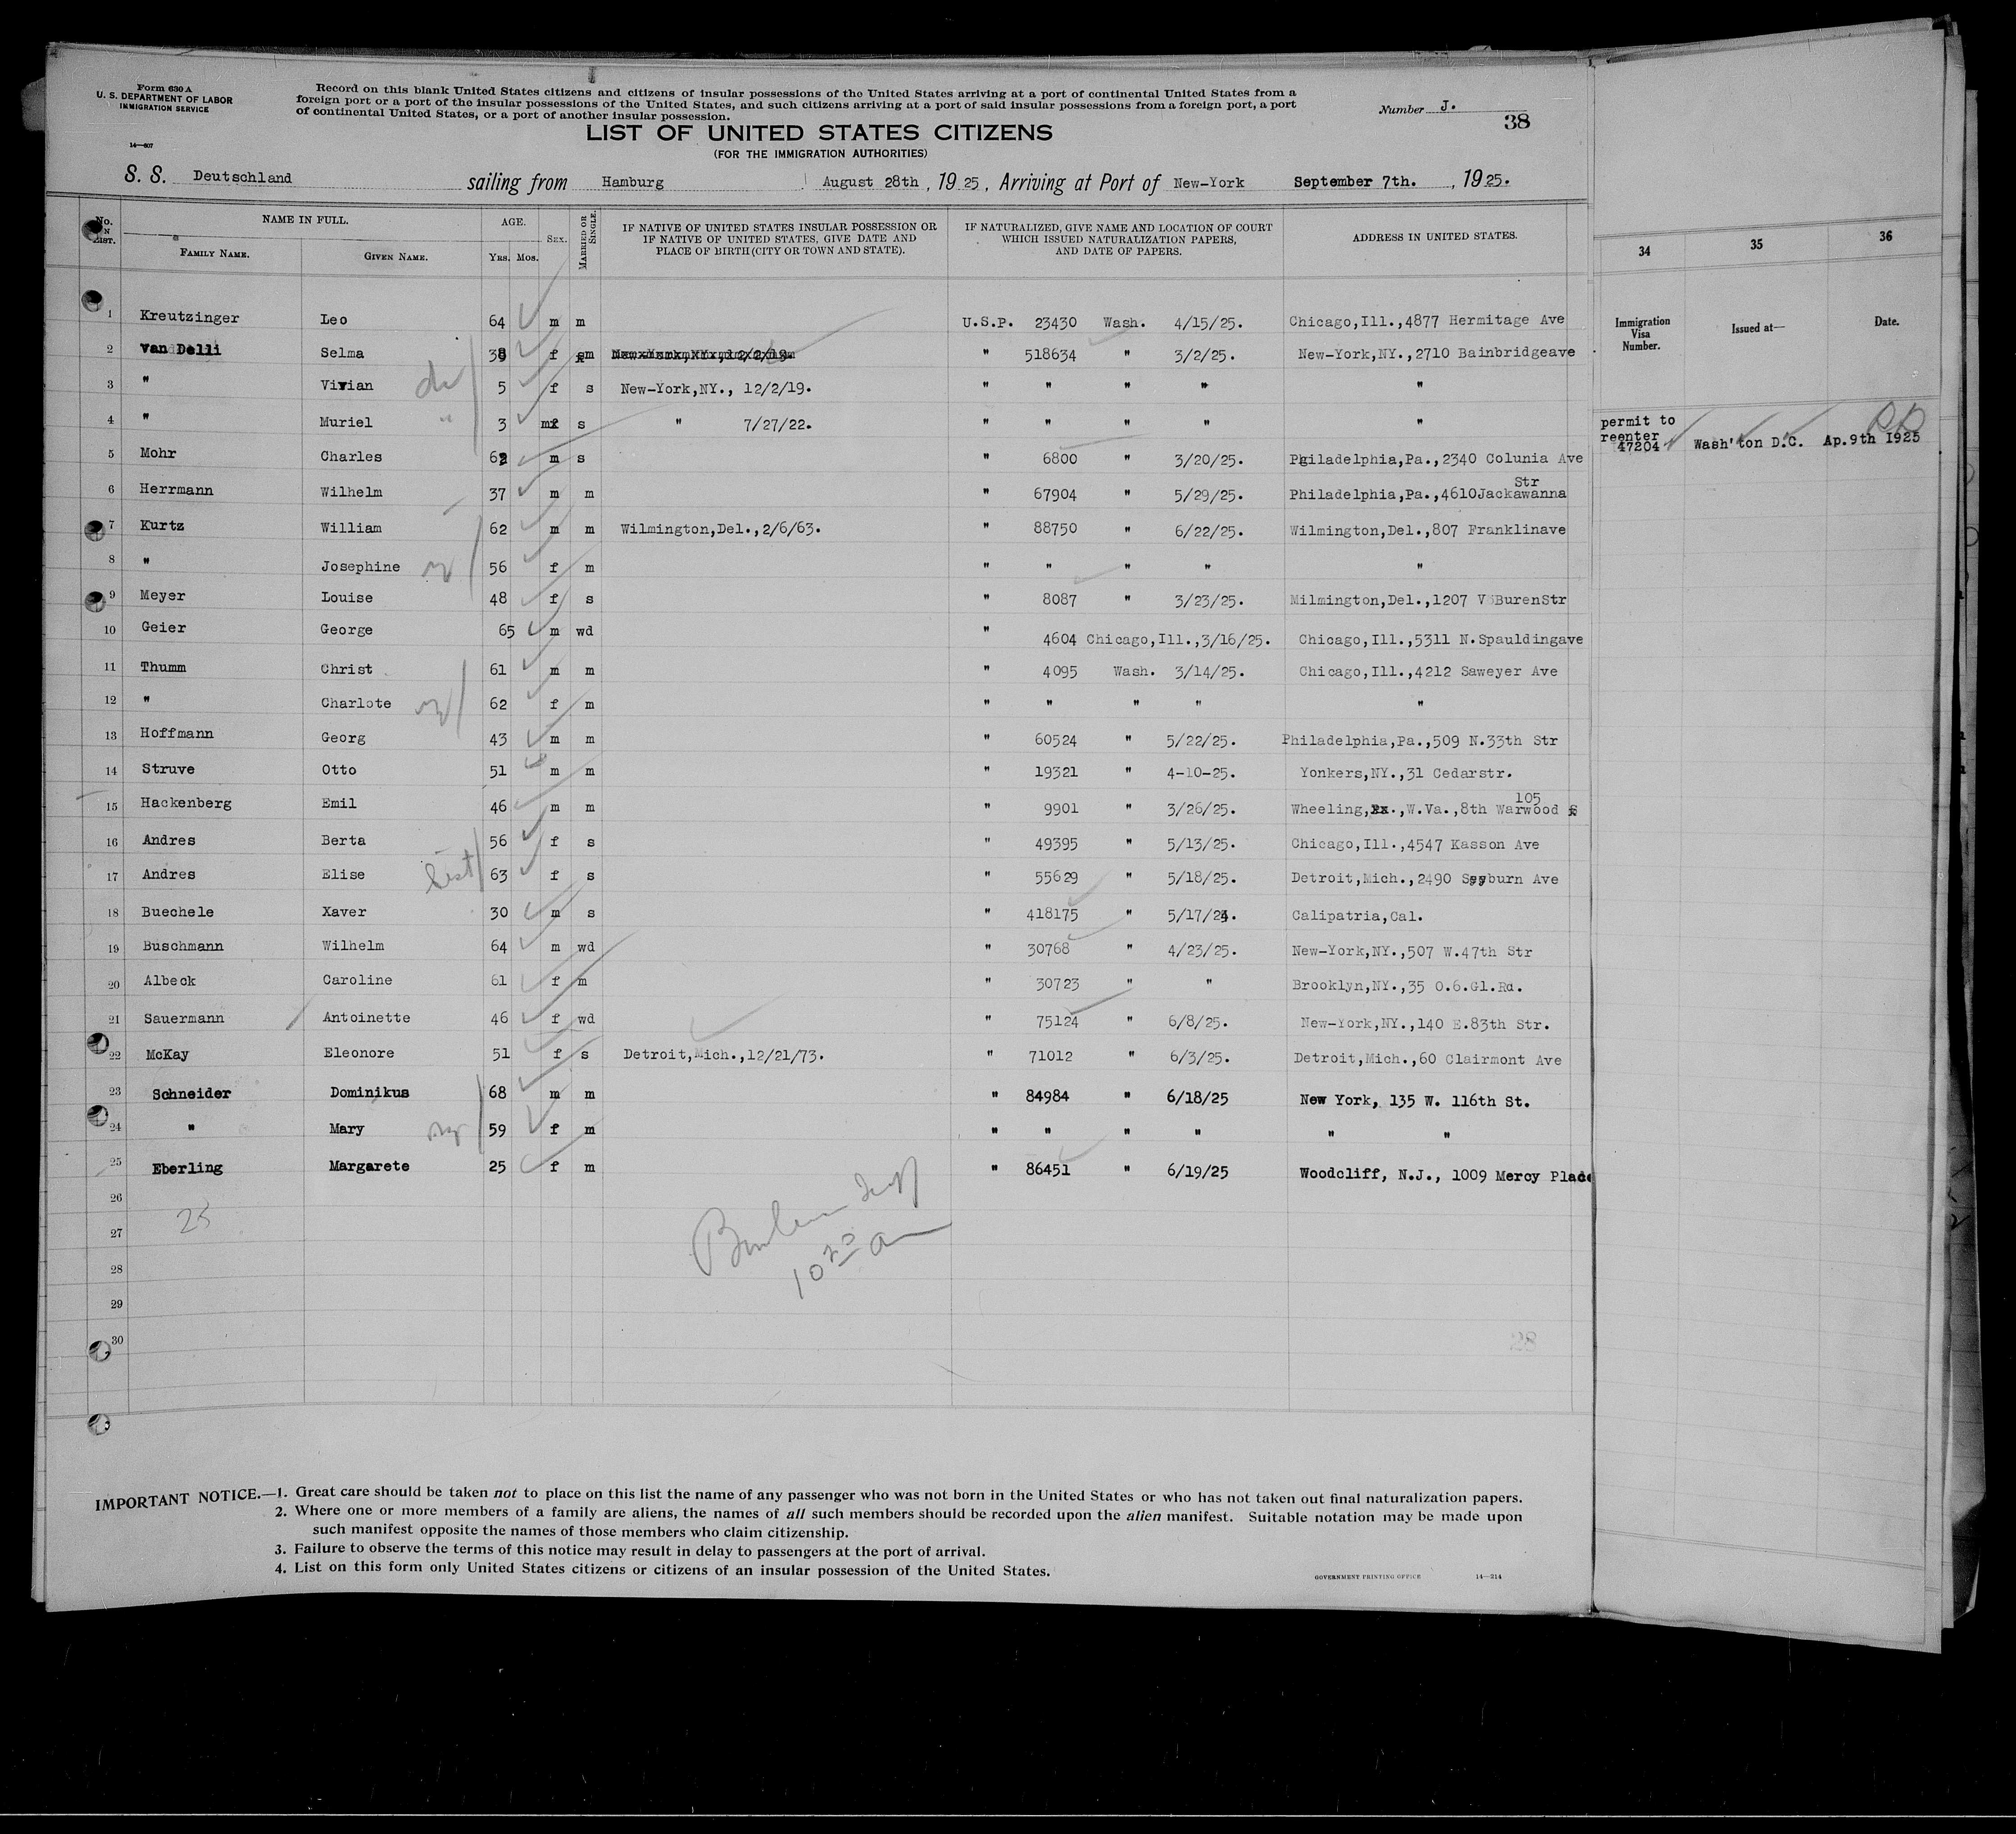 Form 630 A
U. S. DEPARTMENT OF LABOR
IMMIGRATION SERVICE
14—607
Record on this blank United States citizens and citizens of insular possessions of the United States arriving at a port of continental United States from a
foreign port or a port of the insular possessions of the United States, and such citizens arriving at a port of said insular possessions from a foreign port, a port
of continental United States, or a port of another insular possession.
Number J.
38
LIST OF UNITED STATES CITIZENS
(FOR THE IMMIGRATION AUTHORITIES)
S. S. Deutschland sailing from Hamburg August 28th, 1925, Arriving at Port of New-York September 7th., 1925.
No. LIST. NAME IN FULL. FAMILY NAME. GIVEN NAME. AGE. YRS. MOS. SEX. MARRIED OR SINGLE. IF NATIVE OF UNITED STATES INSULAR POSSESSION OR IF NATIVE OF UNITED STATES, GIVE DATE AND PLACE OF BIRTH (CITY OR TOWN AND STATE). IF NATURALIZED, GIVE NAME AND LOCATION OF COURT WHICH ISSUED NATURALIZATION PAPERS, AND DATE OF PAPERS. ADDRESS IN UNITED STATES.
1 Kreutzinger Leo 64 m m U.S.P. 23430 Wash. 4/15/25. Chicago,Ill.,4877 Hermitage Ave
2 van Delli Selma 38 f m " 518634 " 3/2/25. New-York,NY.,2710 Bainbridgeave
3 " Vivian 5 f s New-York,NY., 12/2/19. " " " " "
4 " Muriel 3 f s " 7/27/22. " " " " "
5 Mohr Charles 62 m s " 6800 " 3/20/25. Philadelphia,Pa.,2340 Colunia Ave
6 Herrmann Wilhelm 37 m m " 67904 " 5/29/25. Philadelphia,Pa.,4610Jackawanna Str
7 Kurtz William 62 m m Wilmington,Del.,2/6/63. " 88750 " 6/22/25. Wilmington,Del.,807 Franklinave
8 " Josephine 56 f m " " " " "
9 Meyer Louise 48 f s " 8087 " 3/23/25. Milmington,Del.,1207 V BurenStr
10 Geier George 65 m wd " 4604 Chicago,Ill.,3/16/25. Chicago,Ill.,5311 N.Spauldingave
11 Thumm Christ 61 m m " 4095 Wash. 3/14/25. Chicago,Ill.,4212 Saweyer Ave
12 " Charlote 62 f m " " " " "
13 Hoffmann Georg 43 m m " 60524 " 5/22/25. Philadelphia,Pa.,509 N.33th Str
14 Struve Otto 51 m m " 19321 " 4-10-25. Yonkers,NY.,31 Cedarstr.
15 Hackenberg Emil 46 m m " 9901 " 3/26/25. Wheeling, W.Va.,8th Warwood 105
16 Andres Berta 56 f s " 49395 " 5/13/25. Chicago,Ill.,4547 Kasson Ave
17 Andres Elise 63 f s " 55629 " 5/18/25. Detroit,Mich.,2490 Ave
18 Buechele Xaver 30 m s " 418175 " 5/17/24. Calipatria,Cal.
19 Buschmann Wilhelm 64 m wd " 30768 " 4/23/25. New-York,NY.,507 W.47th Str
20 Albeck Caroline 61 f m " 30723 " " Brooklyn,NY.,35 O.6.Gl.Rd.
21 Sauermann Antoinette 46 f wd " 75124 " 6/8/25. New-York,NY.,140 E.83th Str.
22 McKay Eleonore 51 f s Detroit,Mich.,12/21/73. " 71012 " 6/3/25. Detroit,Mich.,60 Clairmont Ave
23 Schneider Dominikus 68 m m " 84984 " 6/18/25 New York, 135 W. 116th St.
24 " Mary 59 f m " " " " " "
25 Eberling Margarete 25 f m " 86451 " 6/19/25 Woodcliff, N.J., 1009 Mercy Place
26
25
27
10 20 am
28
29
30
28
34 35 36
Immigration Visa Number. Issued at— Date.
permit to
reenter
47204 Wash'ton D.C. Ap.9th 1925
IMPORTANT NOTICE.—1. Great care should be taken not to place on this list the name of any passenger who was not born in the United States or who has not taken out final naturalization papers.
2. Where one or more members of a family are aliens, the names of all such members should be recorded upon the alien manifest. Suitable notation may be made upon
such manifest opposite the names of those members who claim citizenship.
3. Failure to observe the terms of this notice may result in delay to passengers at the port of arrival.
4. List on this form only United States citizens or citizens of an insular possession of the United States.
GOVERNMENT PRINTING OFFICE 14—214